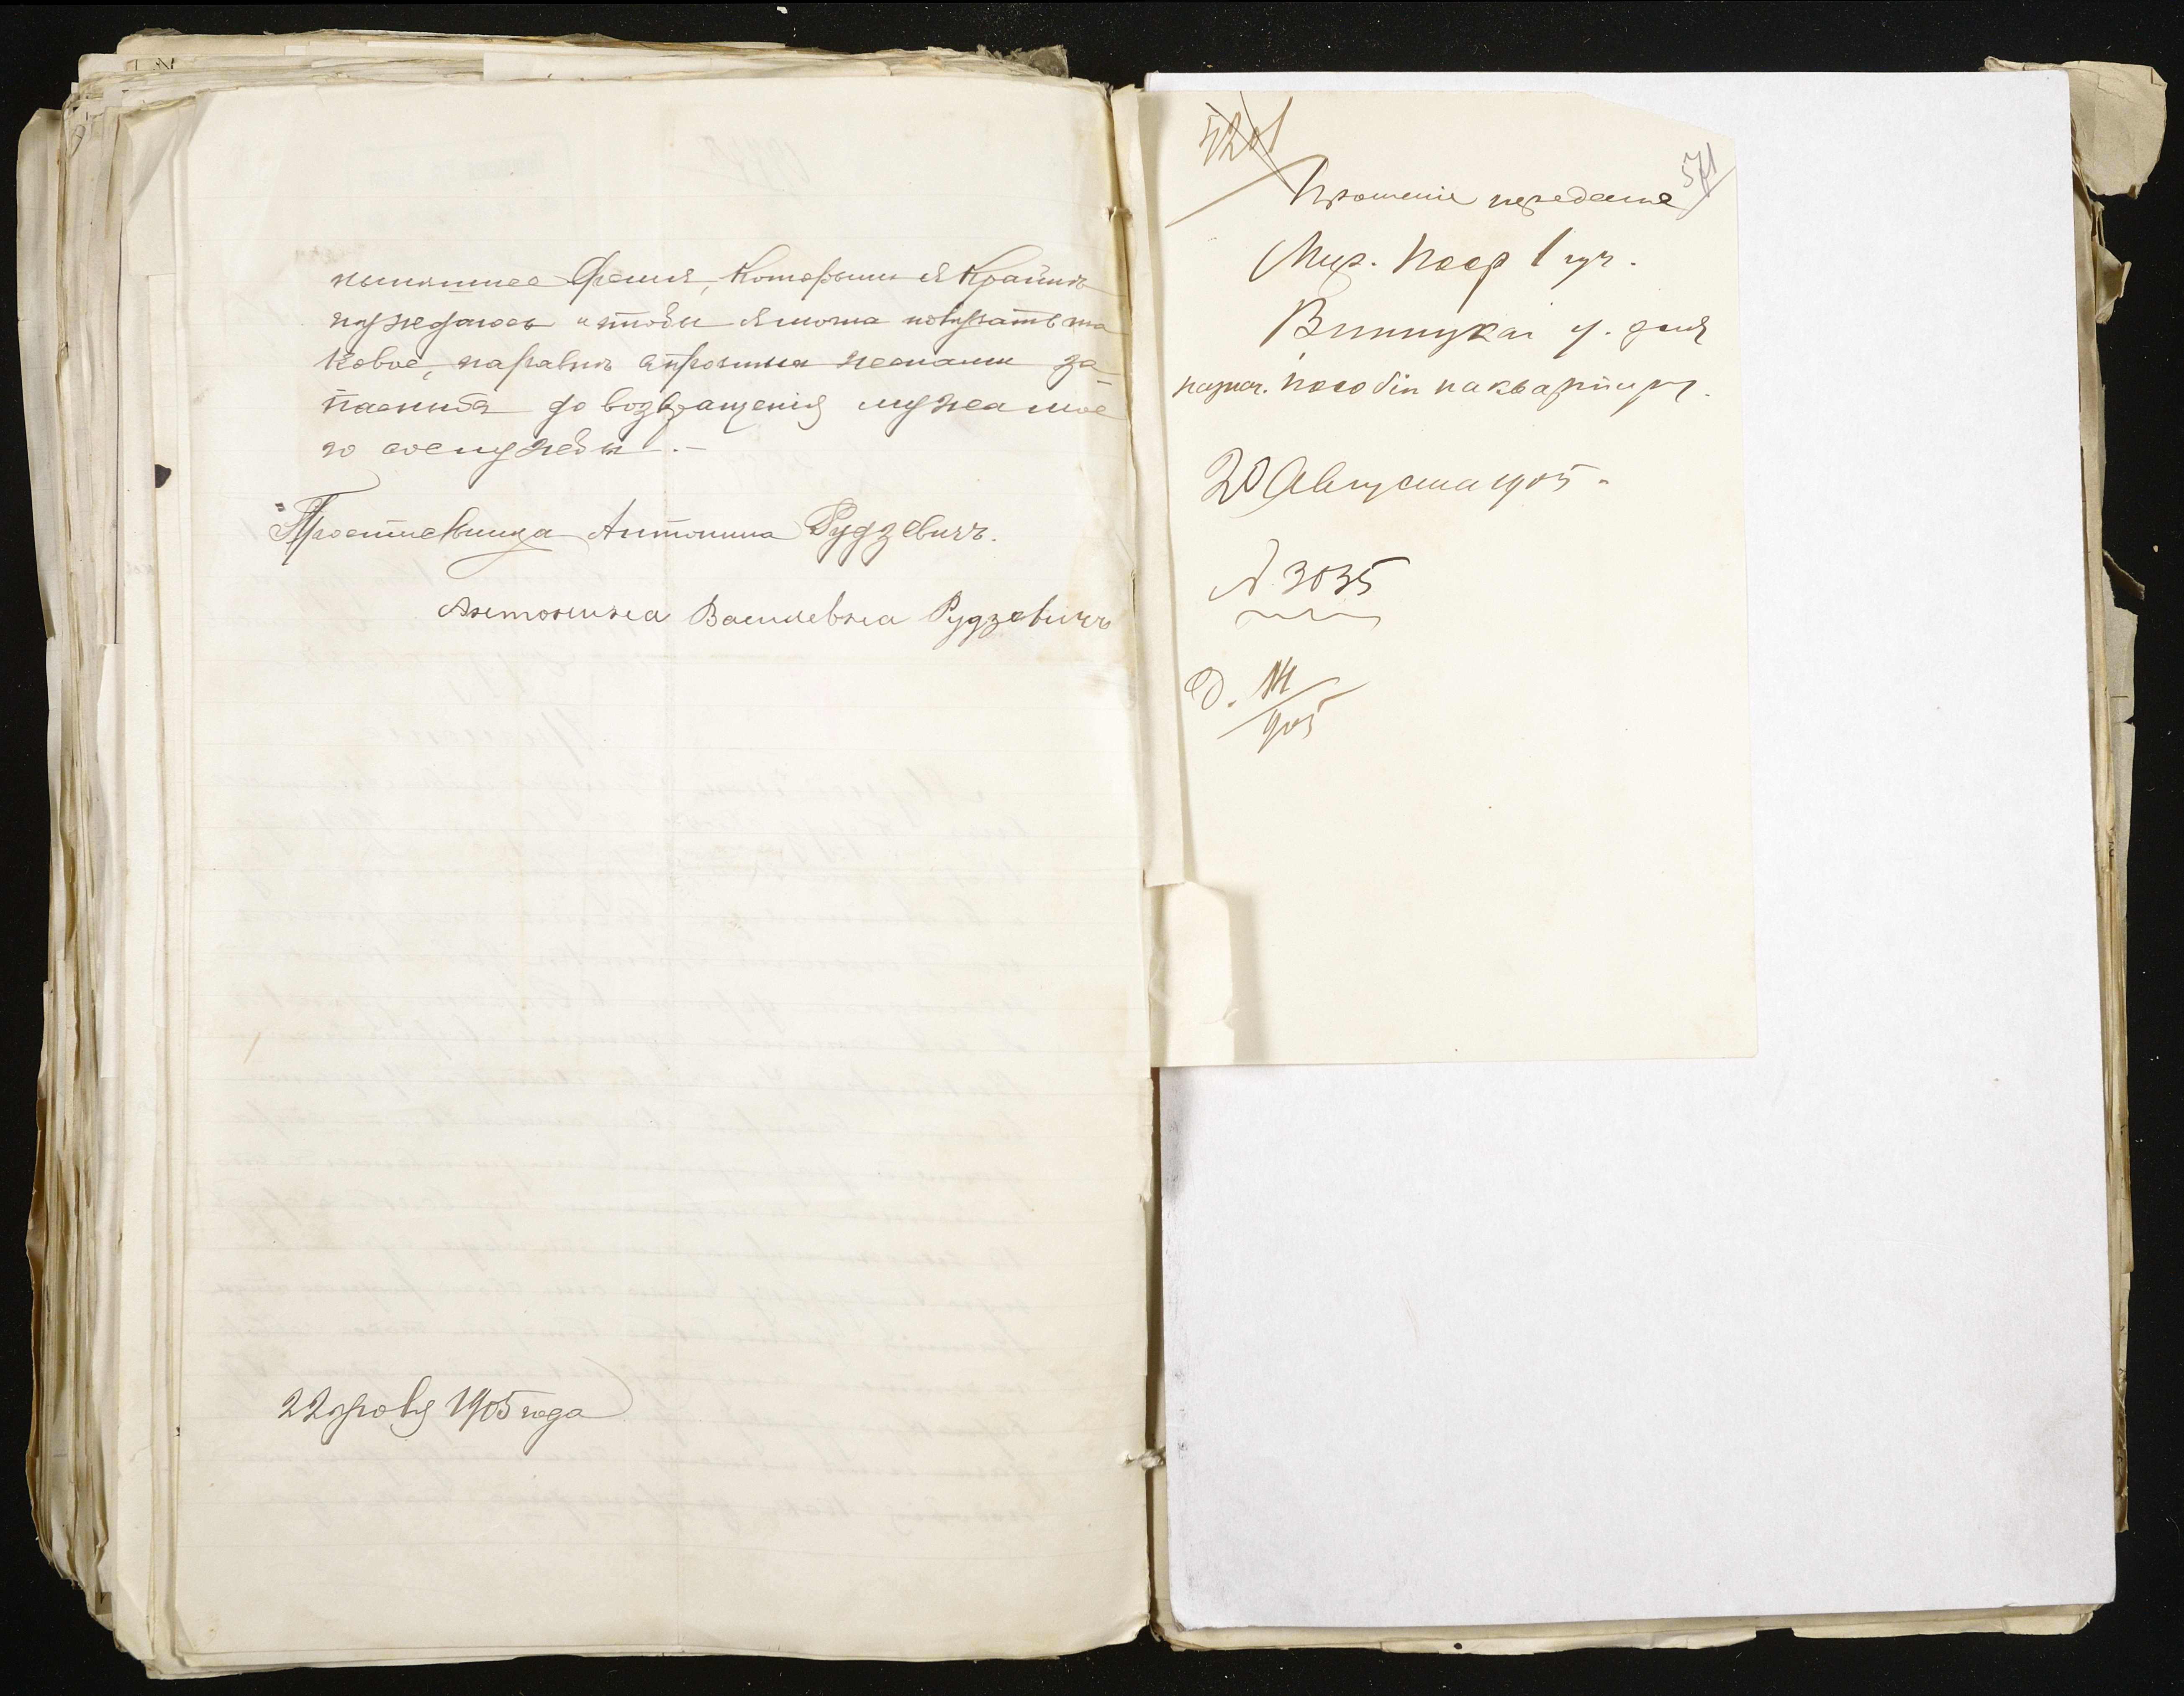 нынѣшнее время, которымъ я крайнѣ
нуждаюсь и чтобы я могла получать та
ковое, наравнѣ съ прочими женами за-
пасныхъ до возвращенія мужа мое
го со службы. —
Просительница Антонина Рудзевичъ.
Антонина Василевна Рудзевичъ
22 1905 года
5201
571
Прошеніе передано
Мир. Поср 1 уч.
Винницкаго у. для
назнач. пособія на квартиру.
20 Августа 1905.
№ 3035
Д. 14/905